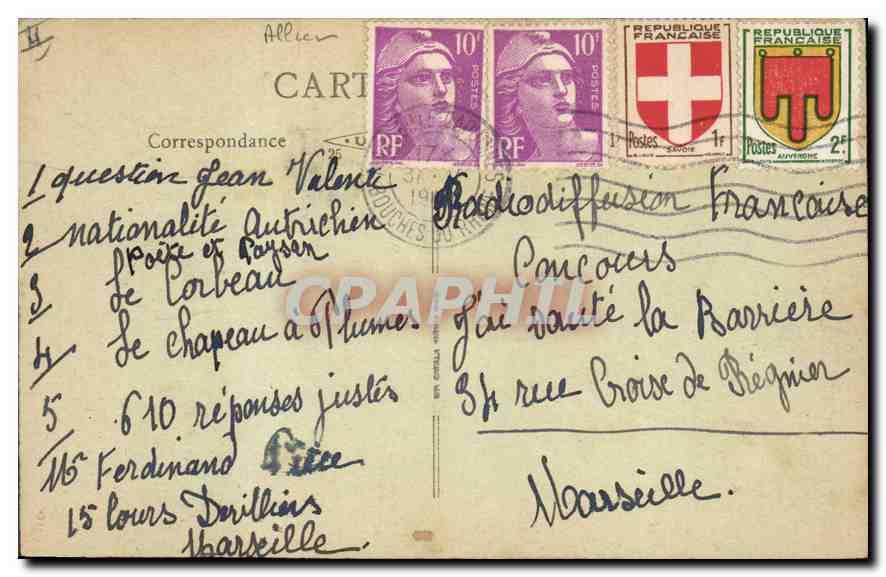 II
Allier
CART
Correspondance
10F
POSTES
RF
10F
POSTES
RF
REPUBLIQUE
FRANÇAISE
Postes 1F
SAVOIE
REPUBLIQUE
FRANÇAISE
Postes 2F
AUVERGNE
BOUCHES DU RHONE
1 question Jean Valenti
2 nationalité Autrichien
Poète et Paysan
3 Le Corbeau
4 Le chapeau à Plumes
5 610 réponses justes
Mr Ferdinand
15 Cours
Marseille.
Radiodiffusion Francaise
Concours
J'ai sauté la Barrière
34 rue Croise de Régnier
Marseille.
CPAPHIL